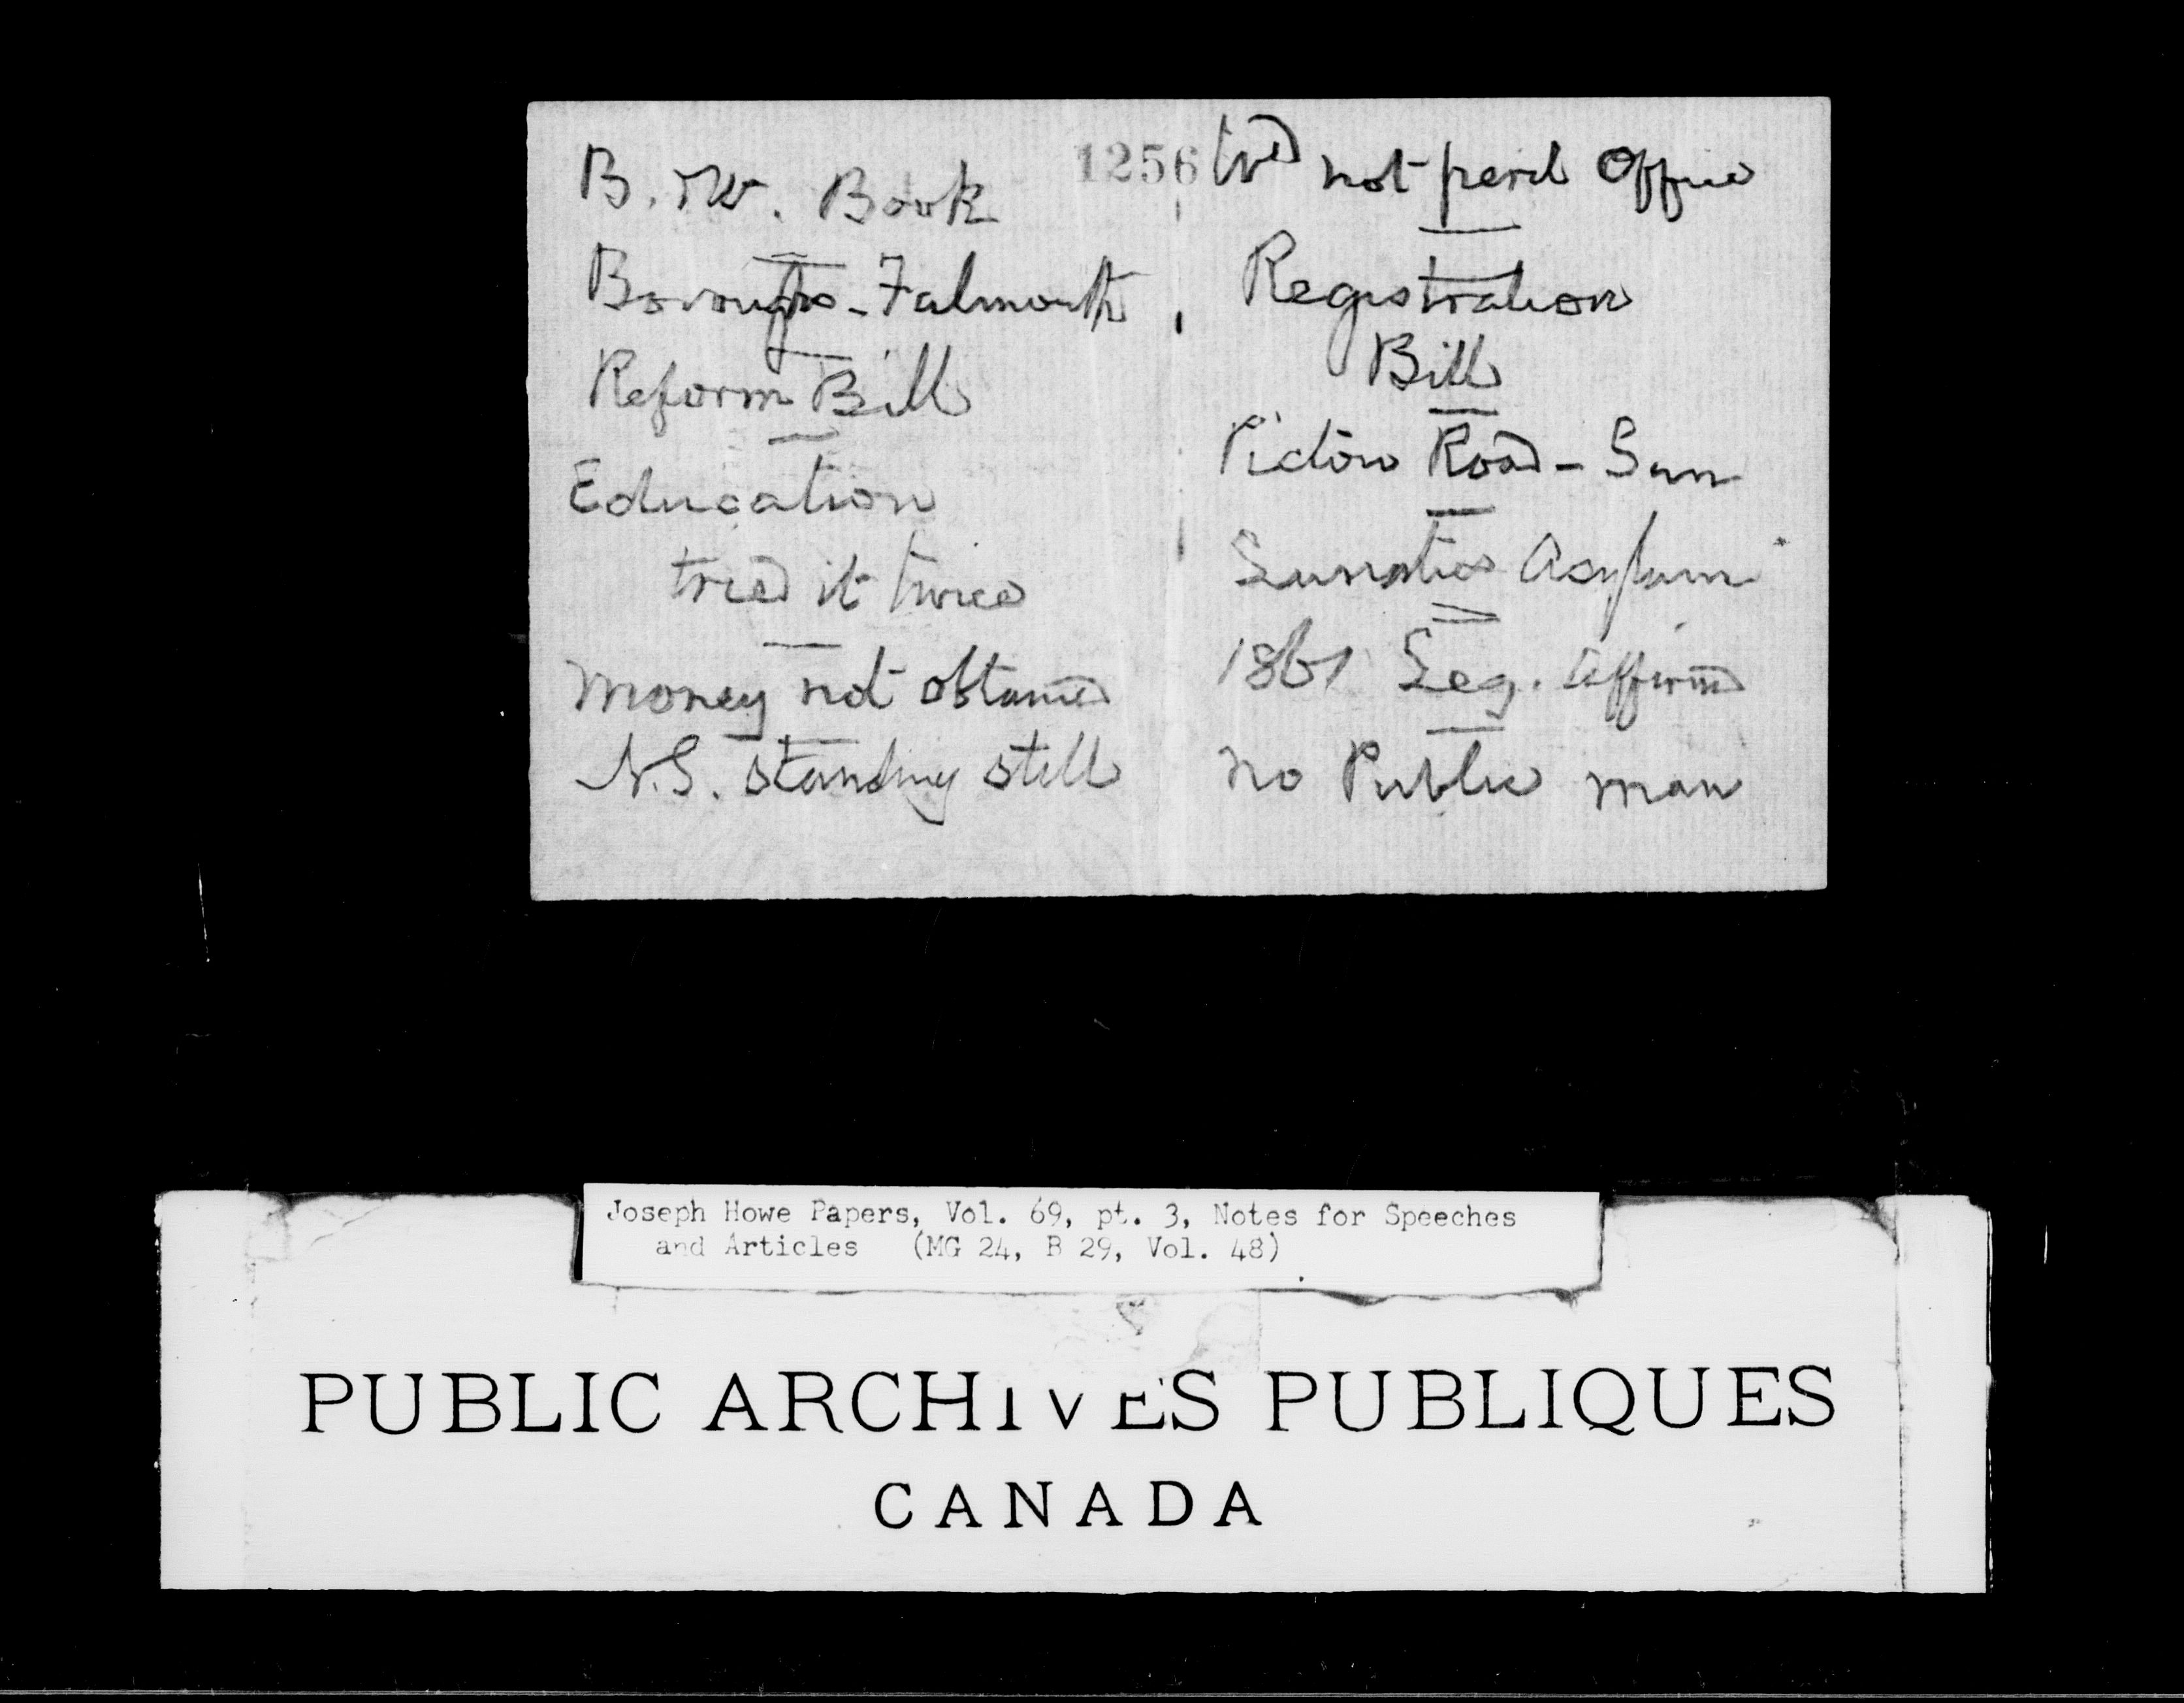 1256
B. & W. Book
Boroughs - Falmouth
Reform Bill
Education
tried it twice
Money not obtained
N.S. standing still
Wd not peril Office
Registration
Bill
Pictou Road - Sun
Lunatic Asylum
1861 Leg. affirmed
No Public man
Joseph Howe Papers, Vol. 69, pt. 3, Notes for Speeches
and Articles (MG 24, B 29, Vol. 48)
PUBLIC ARCHIVES PUBLIQUES
CANADA